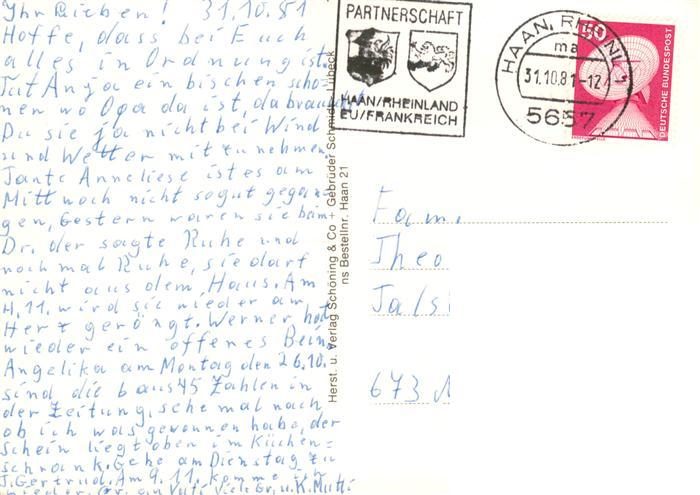 Ihr Lieben! 31.10.81
Hoffe, dass bei Euch
alles in Ordnung ist.
Tut Anja ein bischen schö-
nen wo Opa da ist, da brauch
Du sie ja nicht bei Wind
und Wetter mit zu nehmen.
Tante Anneliese ist es am
Mittwoch nicht so gut gegan-
gen, Gestern waren sie beim
Dr. der sagte Ruhe und
nochmal Ruhe, sie darf
nicht aus dem Haus. Am
4.11. wird sie wieder am
Herz geröngt. Werner hat
wieder ein offenes Bein.
Angelika am Montag den 26.10.
sind die 45 Zahlen in
der Zeitung, sehe mal nach
ob ich was gewonnen habe, der
Schein liegt oben im Küchen=
schrank. Gehe am Dienstag zu
T. Gertrud. Am 9.11. komme ich
wieder. Gr. an Vati Viele Gr. u. K. Mutti
Herst. u. Verlag Schöning & Co + Gebrüder Schmidt, Lübeck
ns Bestellnr. Haan 21
PARTNERSCHAFT
HAAN/RHEINLAND
EU/FRANKREICH
HAAN, RHEINL 1
ma
31.10.81-12
5657
50
DEUTSCHE BUNDESPOST
Fam.
Theo
Tals
673